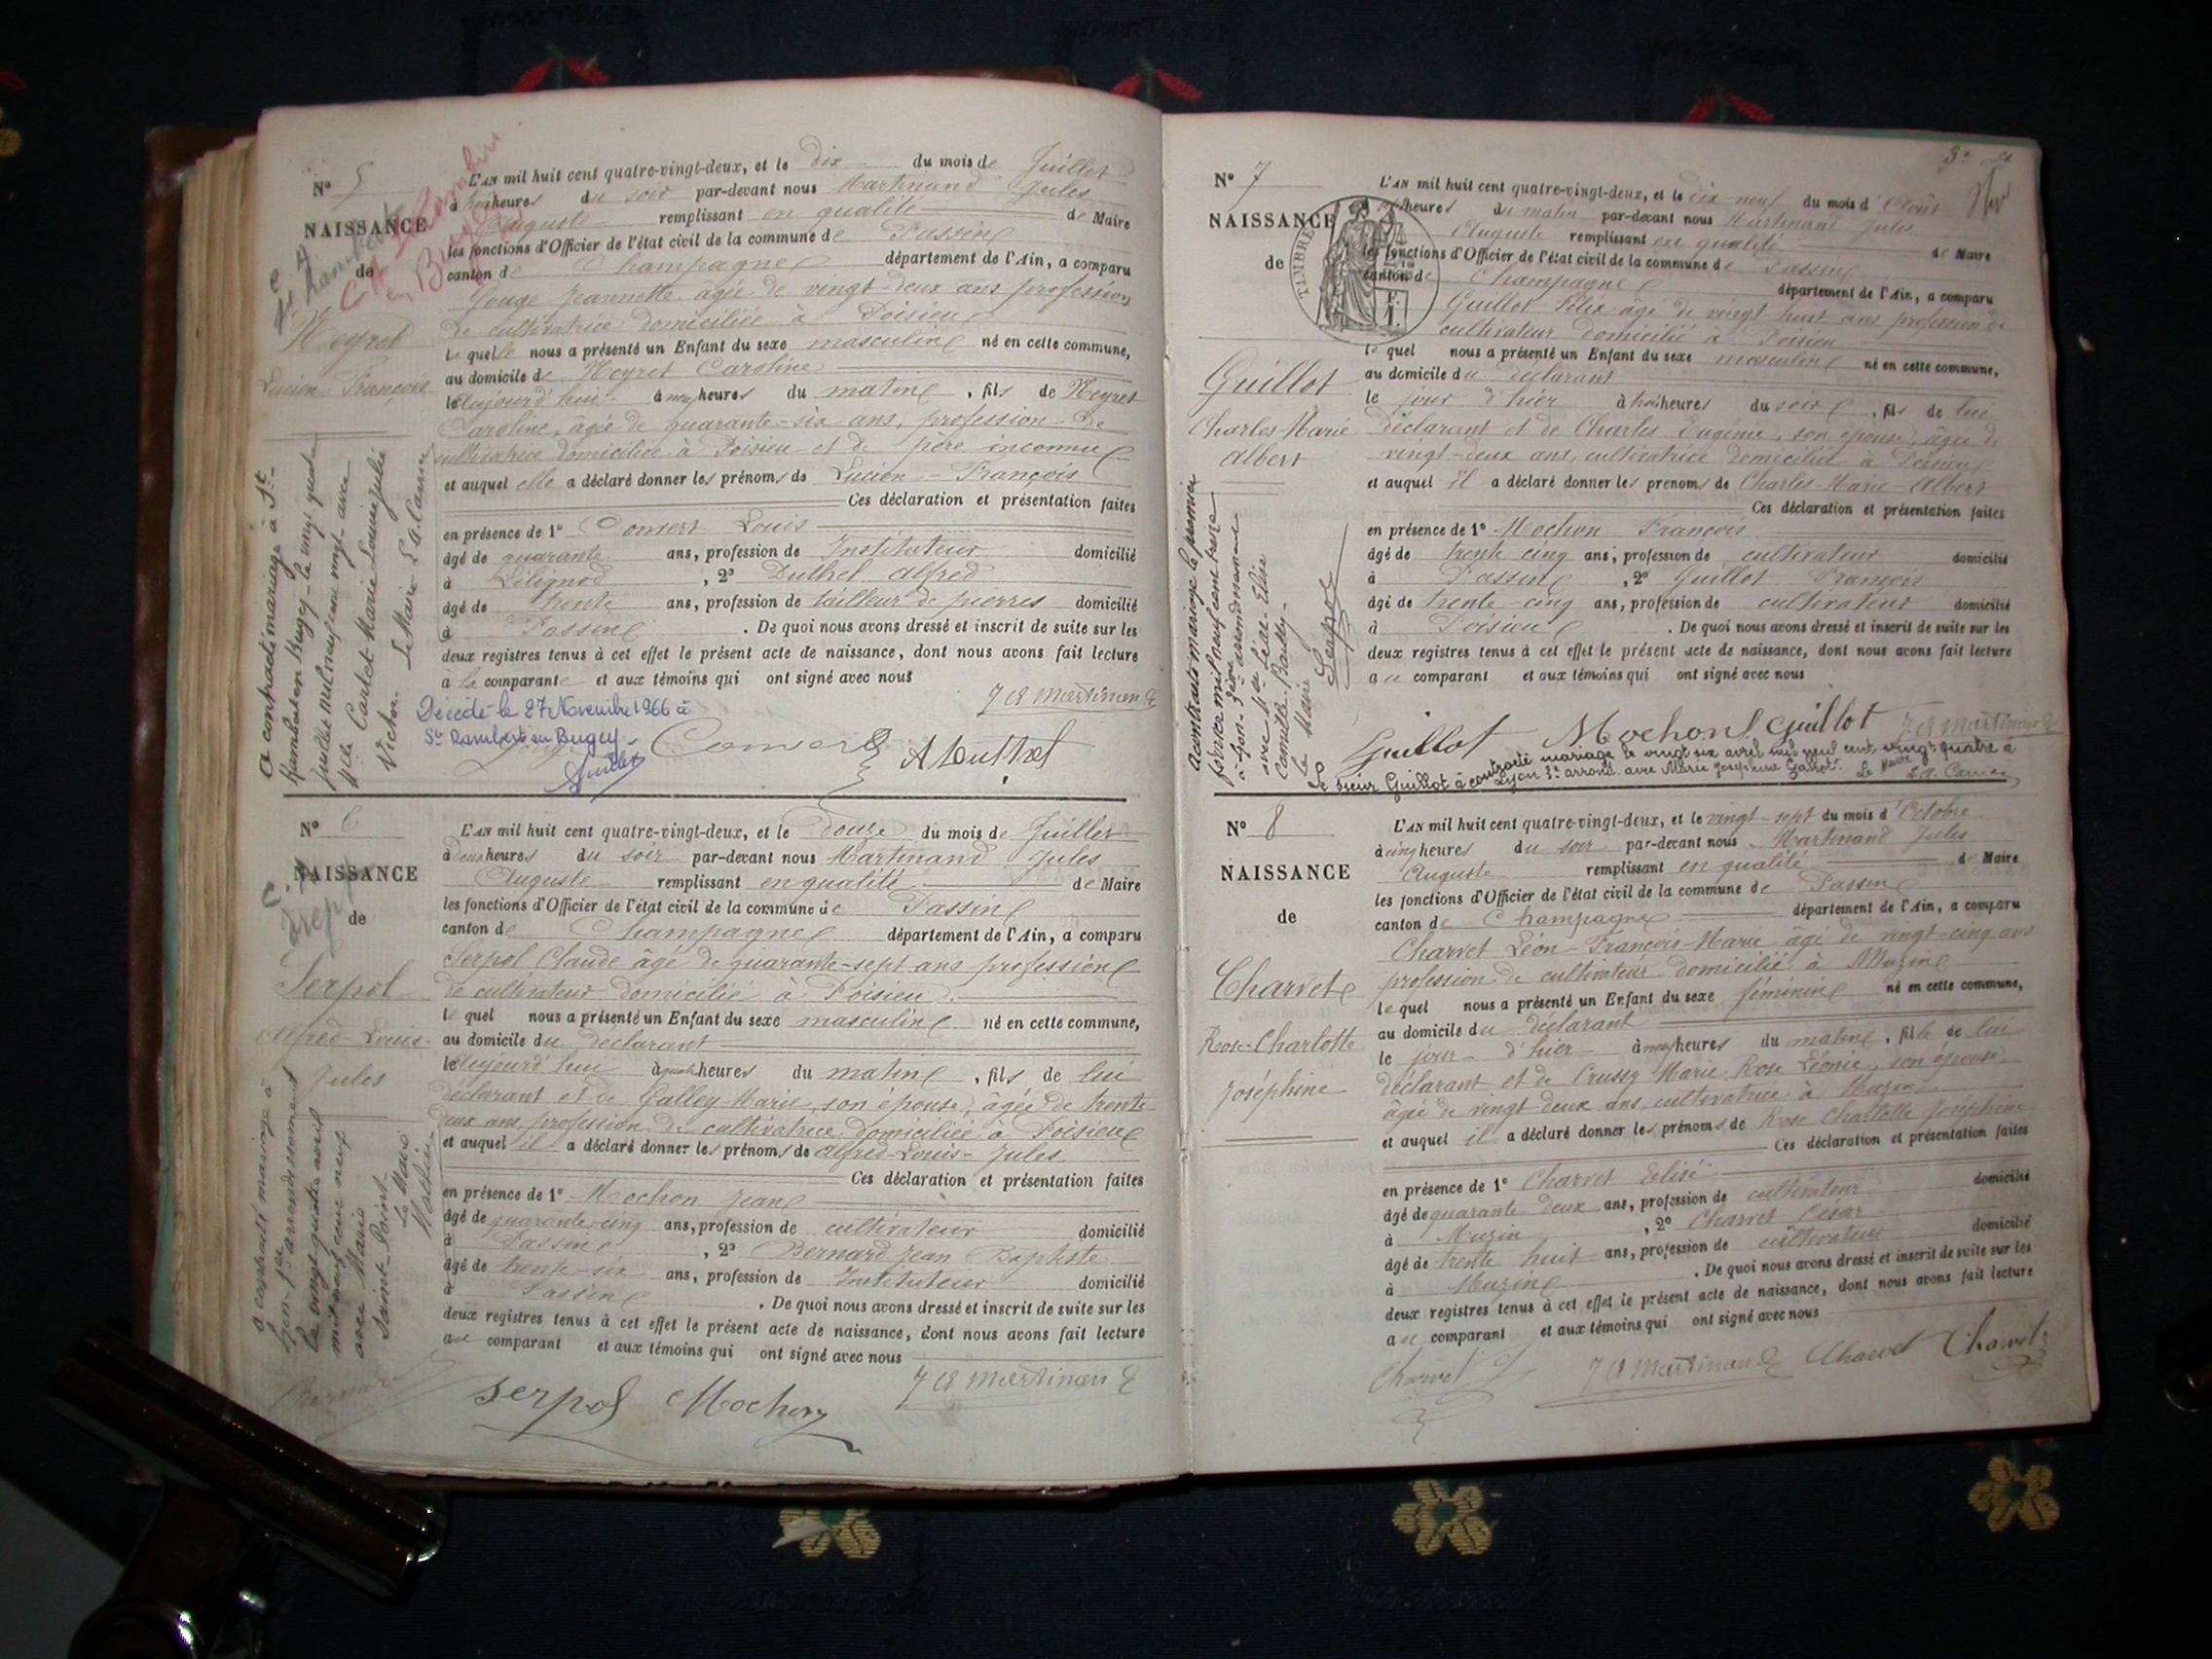 N° 5
NAISSANCE
de
Meyret
Lucien François
L'AN mil huit cent quatre-vingt-deux, et le dix du mois de Juillet
à heures du soir par-devant nous Martinand Jules
Auguste remplissant en qualité de Maire
les fonctions d'Officier de l'état civil de la commune de Passin
canton de Champagne département de l'Ain, a comparu
Gouge Jeannette âgée de vingt-deux ans profession
de cultivatrice domiciliée à Poisieu
laquelle nous a présenté un Enfant du sexe masculin né en cette commune,
au domicile de Meyret Caroline
le aujourd'hui à heures du matin, fils de Meyret
Caroline, âgée de quarante-six ans, profession de
cultivatrice domiciliée à Poisieu et de père inconnu
et auquel elle a déclaré donner les prénoms de Lucien-François
Ces déclaration et présentation faites
en présence de 1° Comers Louis
âgé de quarante ans, profession de Instituteur domicilié
à Lilignod, 2° Duthel Alfred
âgé de trente ans, profession de tailleur de pierres domicilié
à Passin. De quoi nous avons dressé et inscrit de suite sur les
deux registres tenus à cet effet le présent acte de naissance, dont nous avons fait lecture
a la comparante et aux témoins qui ont signé avec nous
J A Martinand
Décédé le 27 Novembre 1966 à
St Rambert en Bugey
A Duthel
a contracté mariage à St
Rambert en Bugey le vingt quatre
juillet mil neuf cent vingt avec
Mlle Cartet Marie Louise Julie
Victor. Le Maire
N° 6
NAISSANCE
de
Serpol
Alfred-Louis-
Jules
L'AN mil huit cent quatre-vingt-deux, et le douze du mois de Juillet
à deux heures du soir par-devant nous Martinand Jules
Auguste remplissant en qualité de Maire
les fonctions d'Officier de l'état civil de la commune de Passin
canton de Champagne département de l'Ain, a comparu
Serpol Claude âgé de quarante-sept ans profession
de cultivateur domicilié à Poisieu.
le quel nous a présenté un Enfant du sexe masculin né en cette commune,
au domicile du déclarant
le aujourd'hui à quatre heures du matin, fils de lui
déclarant et de Galley Marie, son épouse, âgée de trente
deux ans, profession de cultivatrice domiciliée à Poisieu
et auquel il a déclaré donner les prénoms de Alfred-Louis-Jules.
Ces déclaration et présentation faites
en présence de 1° Mochon Jean
âgé de quarante-cinq ans, profession de cultivateur domicilié
à Passin, 2° Bernard Jean Baptiste
âgé de trente-six ans, profession de Instituteur domicilié
à Passin. De quoi nous avons dressé et inscrit de suite sur les
deux registres tenus à cet effet le présent acte de naissance, dont nous avons fait lecture
au comparant et aux témoins qui ont signé avec nous
Bernard Serpol Mochon J A Martinand
a contracté mariage à
Lyon 1er arrondissement
le vingt quatre avril
mil neuf cent neuf
avec Marie
Saint-Point
Le Maire
N° 7
NAISSANCE
de
TIMBRE
Guillot
Charles Marie
Albert
L'AN mil huit cent quatre-vingt-deux, et le dix-neuf du mois d'Août
à heures du matin par-devant nous Martinand Jules
Auguste remplissant en qualité de Maire
les fonctions d'Officier de l'état civil de la commune de Passin
canton de Champagne département de l'Ain, a comparu
Guillot Félix âgé de vingt huit ans profession de
cultivateur domicilié à Poisieu
le quel nous a présenté un Enfant du sexe masculin né en cette commune,
au domicile du déclarant
le jour d'hier à heures du soir, fils de lui
déclarant et de Charles Eugénie, son épouse, âgée de
vingt-deux ans, cultivatrice domiciliée à Poisieu
et auquel il a déclaré donner les prénoms de Charles-Marie-Albert
Ces déclaration et présentation faites
en présence de 1° Mochon François
âgé de trente cinq ans, profession de cultivateur domicilié
à Passin, 2° Guillot François
âgé de trente-cinq ans, profession de cultivateur domicilié
à Poisieu. De quoi nous avons dressé et inscrit de suite sur les
deux registres tenus à cet effet le présent acte de naissance, dont nous avons fait lecture
au comparant et aux témoins qui ont signé avec nous
Guillot Mochon F. Guillot J A Martinand
Le sieur Guillot à contracté mariage le vingt six avril mil neuf cent vingt quatre à
Lyon 3e arrond. avec Marie Joséphine Gallot. Le Maire
a contracté mariage le premier
février mil neuf cent treize
Le Maire
Serpol
N° 8
NAISSANCE
de
Charvet
Rose-Charlotte
Joséphine
L'AN mil huit cent quatre-vingt-deux, et le vingt-sept du mois d'Octobre
à cinq heures du soir par-devant nous Martinand Jules
Auguste remplissant en qualité de Maire
les fonctions d'Officier de l'état civil de la commune de Passin
canton de Champagne département de l'Ain, a comparu
Charvet Léon-François-Marie âgé de vingt-cinq ans
profession de cultivateur domicilié à Muzin
le quel nous a présenté un Enfant du sexe féminin né en cette commune,
au domicile du déclarant
le jour d'hier à heures du matin, fille de lui
déclarant et de Crussy Marie Rose Léonie, son épouse,
âgée de vingt deux ans, cultivatrice à Muzin
et auquel il a déclaré donner les prénoms de Rose Charlotte Joséphine
Ces déclaration et présentation faites
en présence de 1° Charvet Elisé
âgé de quarante deux ans, profession de cultivateur domicilié
à Muzin, 2° Charvet César
âgé de trente huit ans, profession de cultivateur domicilié
à Muzin. De quoi nous avons dressé et inscrit de suite sur les
deux registres tenus à cet effet le présent acte de naissance, dont nous avons fait lecture
au comparant et aux témoins qui ont signé avec nous
Charvet J A Martinand Charvet Charvet